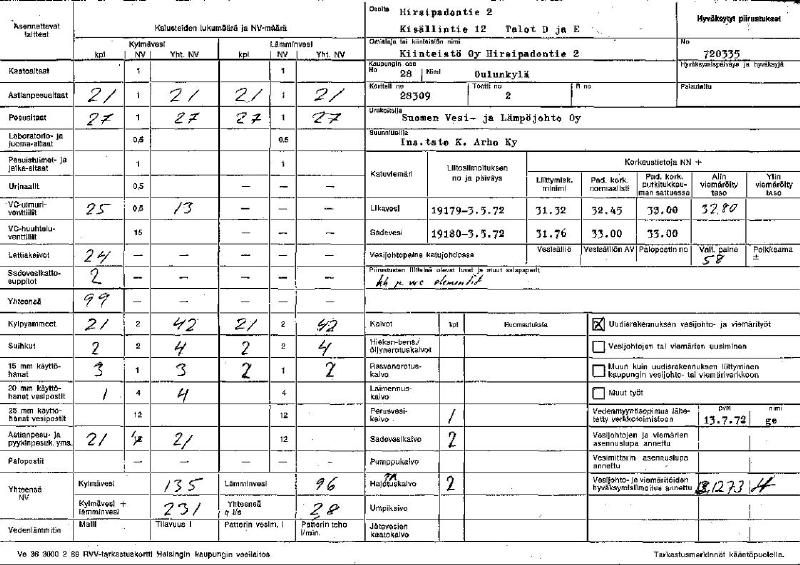 Asennettavat laitteet
Kalusteiden lukumäärä ja NV-määrä
Kylmävesi
Lämminvesi
kpl NV Yht. NV kpl NV Yht. NV
Kaatoaltaat 1 — 1 —
Astianpesualtaat 21 1 21 21 1 21
Pesualtaat 27 1 27 27 1 27
Laboratorio- ja juoma-altaat 0,5 0,5
Pesuistuimet- ja jalka-altaat 1 1
Urinaalit 0,5 — — —
VC-uimuriventtiilit 25 0,5 13 — — —
VC-huuhteluventtiilit 15 — — —
Lattiakaivot 24 — — — — —
Sadevesikattosuppilot 2 — — — — —
Yhteensä 99 — — — — —
Kylpyammeet 21 2 42 21 2 42
Suihkut 2 2 4 2 2 4
15 mm käyttöhanat 3 1 3 2 1 2
20 mm käyttöhanat vesipostit 1 4 4 4
25 mm käyttöhanat vesipostit 12 12
Astianpesu- ja pyykinpesuk. yms. 21 21 12
Palopostit — — — — —
Yhteensä NV
Kylmävesi 135 Lämminvesi 96
Kylmävesi + lämminvesi 231 Yhteensä q l/s 28
Vedenlämmitin Malli Tilavuus l Patterin vesim. l Patterin teho l/min.
Osoite Hirsipadontie 2
Kisällintie 12 Talot D ja E
Omistaja tai kiinteistön nimi
Kiinteistö Oy Hirsipadontie 2
Kaupungin osa
No 28 Nimi Oulunkylä
Kortteli no 28309 Tontti no 2 R no
Urakoitsija
Suomen Vesi- ja Lämpöjohto Oy
Suunnittelija
Ins.tsto K. Arho Ky
Hyväksytyt piirustukset
No 720335
Hyväksymispäiväys ja hyväksyjä
Palautettu
Katuviemäri Liitosilmoituksen no ja päiväys
Korkeustietoja NN +
Liittymisk. minimi Pad. kork. normaalisti Pad. kork. purkitukkauman sattuessa Alin viemäröity taso Ylin viemäröity taso
Likavesi 19179-3.5.72 31.32 32.45 33.00 32.80
Sadevesi 19180-3.5.72 31.76 33.00 33.00
Vesijohtopaine katujohdossa Vesisäiliö Vesisäiliön AV Palopostin no Vall. paine 58 Poikkeama ±
Piirustusten liitteinä olevat luvat ja muut asiapaperit
kh ja wc elementit
Kaivot kpl Huomautuksia
Hiekan-bens./öljynerotuskaivot
Rasvanerotuskaivo
Laimennuskaivo
Perusvesikaivo 1
Sadevesikaivo 2
Pumppukaivo
Hajotuskaivo 2
Umpikaivo
Jätevesien kaatokaivo
☒ Uudisrakennuksen vesijohto- ja viemärityöt
☐ Vesijohtojen tai viemärien uusiminen
☐ Muun kuin uudisrakennuksen liittyminen kaupungin vesijohto- tai viemäriverkkoon
☐ Muut työt
pvm nimi
Vedenmyyntisopimus lähetetty verkkotoimistoon 13.7.72 ge
Vesijohtojen ja viemärien asennuslupa annettu
Vesimittarin asennuslupa annettu
Vesijohto- ja viemäritöiden hyväksymisilmoitus annettu
Ve 36 3000 2 69 RVV-tarkastuskortti Helsingin kaupungin vesilaitos
Tarkastusmerkinnät kääntöpuolella.